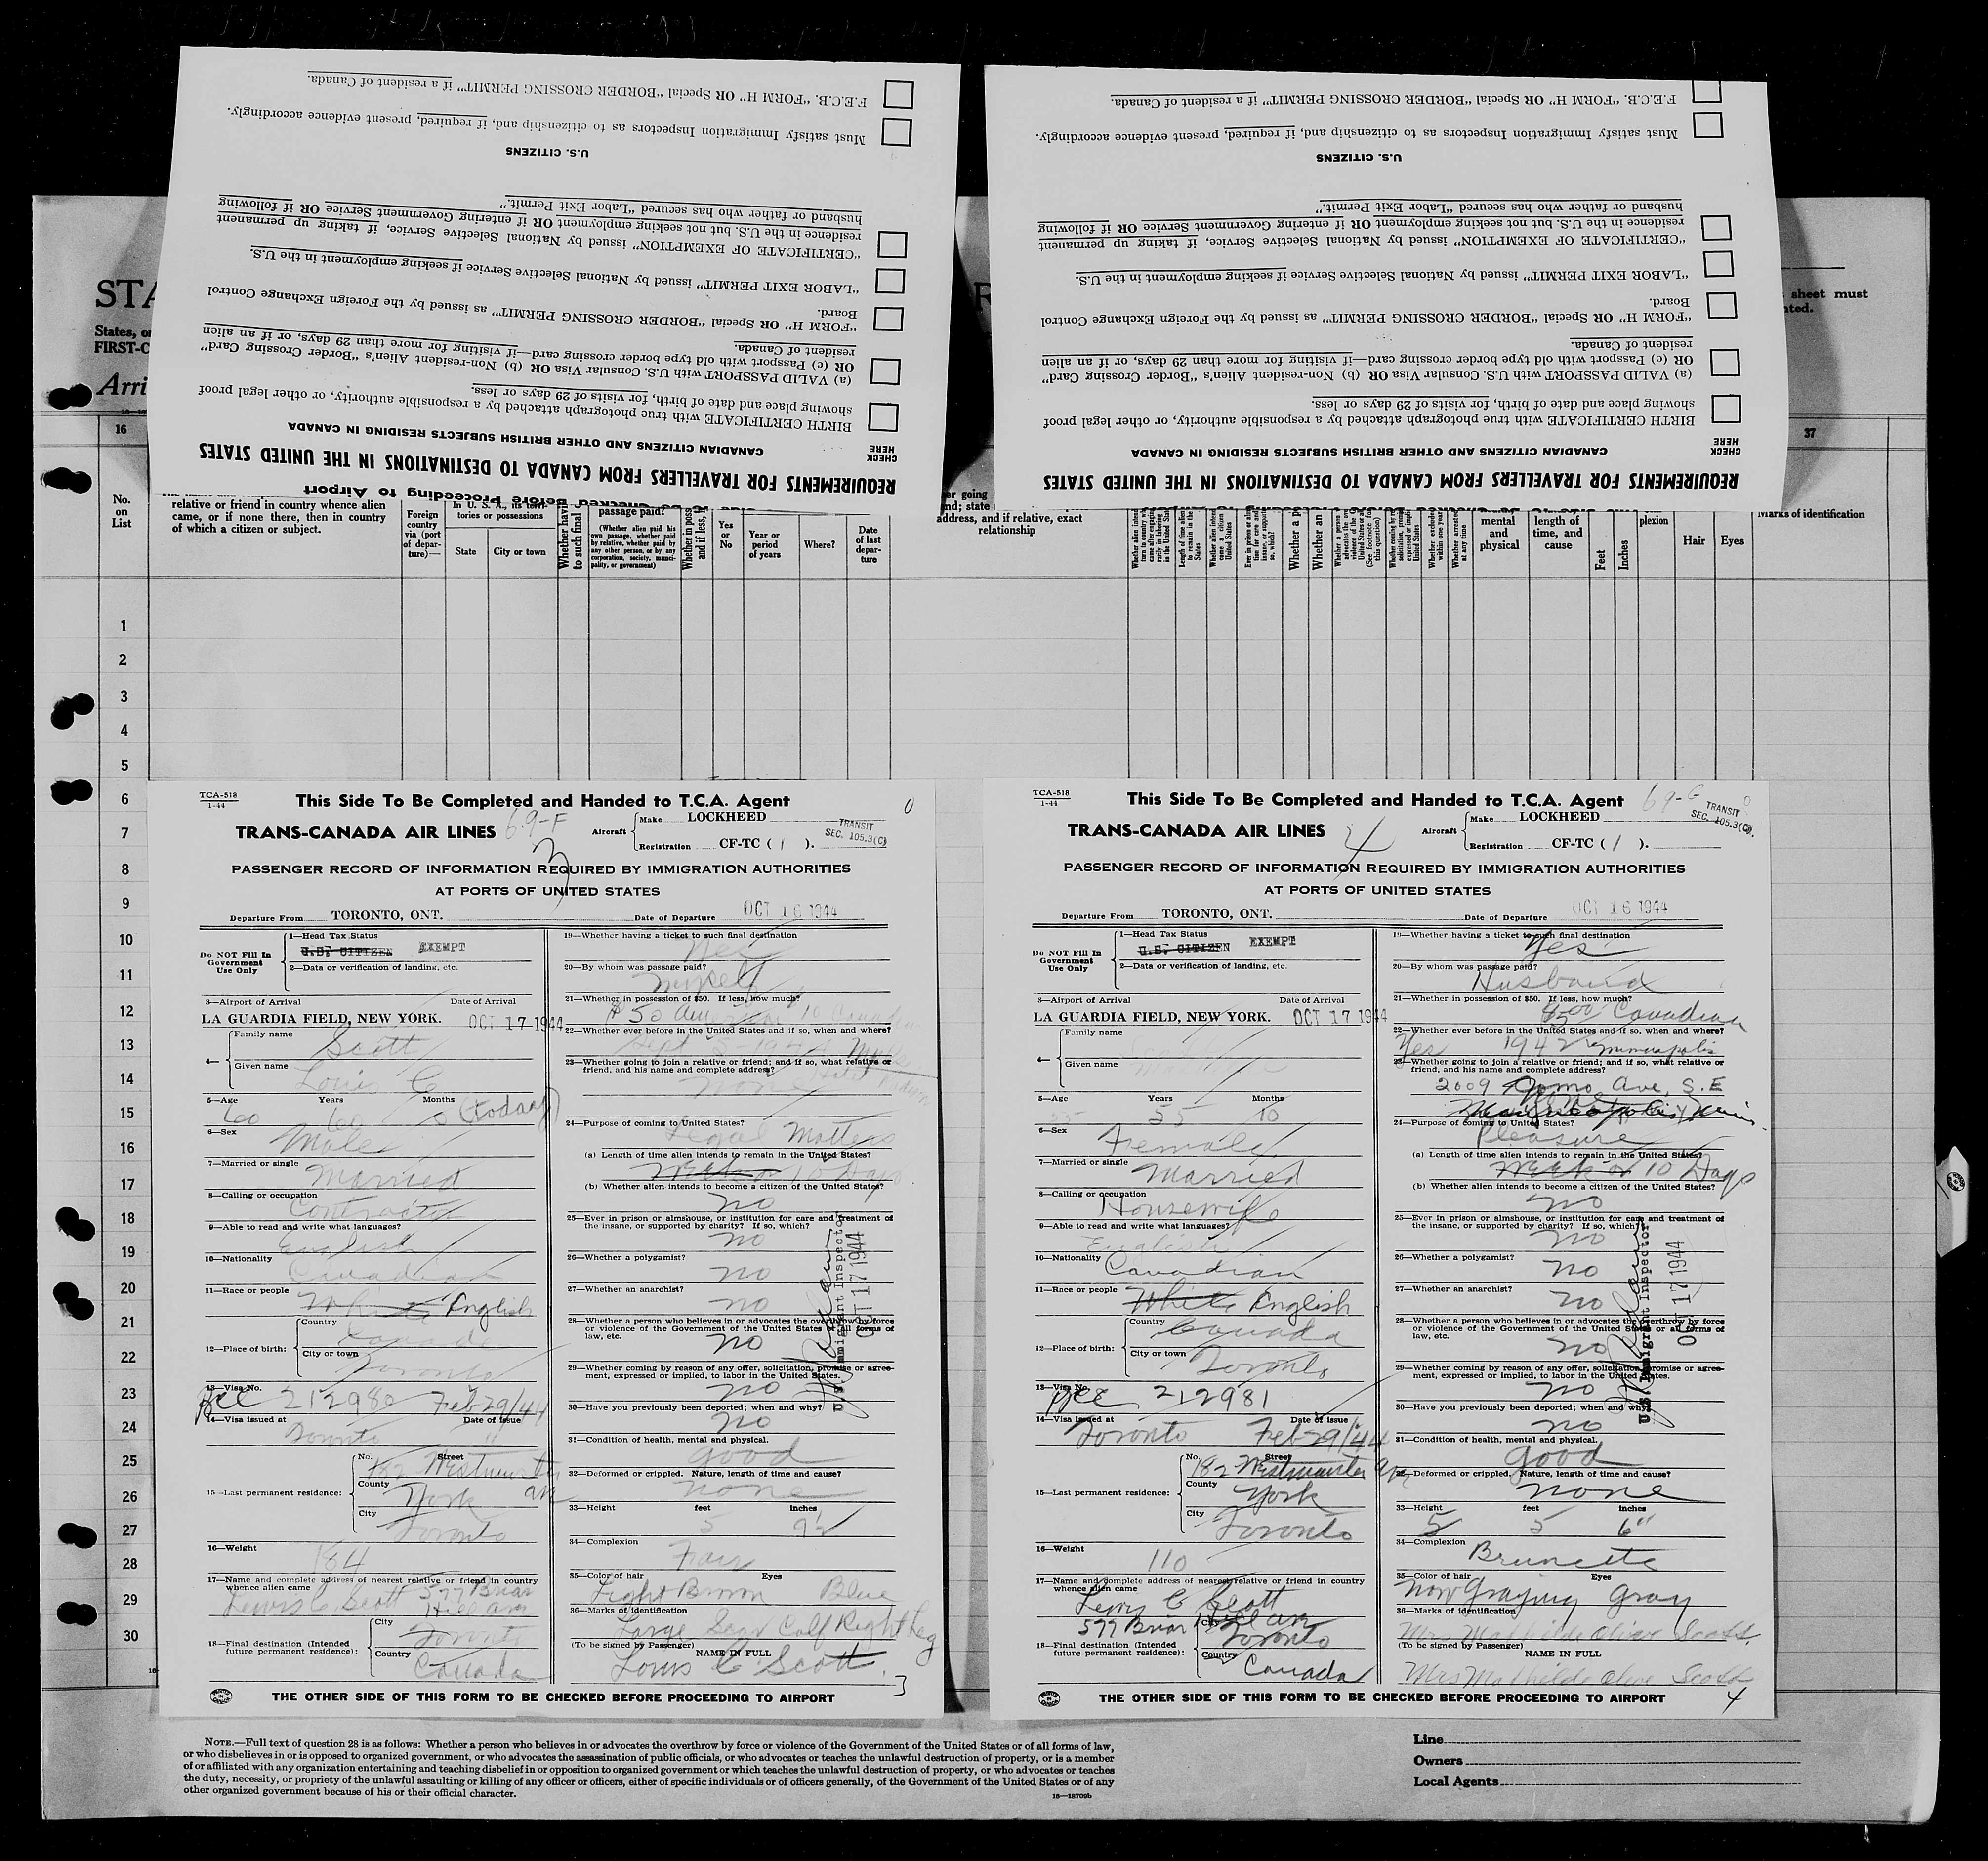 F.E.C.B. "FORM H" OR Special "BORDER CROSSING PERMIT" if a resident of Canada.
Must satisfy Immigration Inspectors as to citizenship and, if required, present evidence accordingly.
U.S. CITIZENS
husband or father who has secured "Labor Exit Permit."
residence in the U.S. but not seeking employment OR if entering Government Service OR if following
"CERTIFICATE OF EXEMPTION" issued by National Selective Service, if taking up permanent
"LABOR EXIT PERMIT" issued by National Selective Service if seeking employment in the U.S.
Board.
"FORM H" OR Special "BORDER CROSSING PERMIT" as issued by the Foreign Exchange Control
resident of Canada.
OR (c) Passport with old type border crossing card—if visiting for more than 29 days, or if an alien
(a) VALID PASSPORT with U.S. Consular Visa OR (b) Non-resident Alien's "Border Crossing Card"
showing place and date of birth, for visits of 29 days or less.
BIRTH CERTIFICATE with true photograph attached by a responsible authority, or other legal proof
CANADIAN CITIZENS AND OTHER BRITISH SUBJECTS RESIDING IN CANADA
CHECK HERE
REQUIREMENTS FOR TRAVELLERS FROM CANADA TO DESTINATIONS IN THE UNITED STATES
F.E.C.B. "FORM H" OR Special "BORDER CROSSING PERMIT" if a resident of Canada.
Must satisfy Immigration Inspectors as to citizenship and, if required, present evidence accordingly.
U.S. CITIZENS
husband or father who has secured "Labor Exit Permit."
residence in the U.S. but not seeking employment OR if entering Government Service OR if following
"CERTIFICATE OF EXEMPTION" issued by National Selective Service, if taking up permanent
"LABOR EXIT PERMIT" issued by National Selective Service if seeking employment in the U.S.
Board.
"FORM H" OR Special "BORDER CROSSING PERMIT" as issued by the Foreign Exchange Control
resident of Canada.
OR (c) Passport with old type border crossing card—if visiting for more than 29 days, or if an alien
(a) VALID PASSPORT with U.S. Consular Visa OR (b) Non-resident Alien's "Border Crossing Card"
showing place and date of birth, for visits of 29 days or less.
BIRTH CERTIFICATE with true photograph attached by a responsible authority, or other legal proof
CANADIAN CITIZENS AND OTHER BRITISH SUBJECTS RESIDING IN CANADA
CHECK HERE
REQUIREMENTS FOR TRAVELLERS FROM CANADA TO DESTINATIONS IN THE UNITED STATES
STA
States, o
FIRST-C
Arri
sheet must
16
37
No. on List
relative or friend in country whence alien
came, or if none there, then in country
of which a citizen or subject.
Foreign country via (port of departure)—
In U. S. A., its territories or possessions
State
City or town
passage paid?
(Whether alien paid his own passage, whether paid by relative, whether paid by any other person, or by any corporation, society, municipality, or government)
Yes or No
Year or period of years
Where?
Date of last departure
address, and if relative, exact
relationship
mental and physical
length of time, and cause
Feet
Inches
plexion
Hair
Eyes
Marks of identification
1
2
3
4
5
6
7
8
9
10
11
12
13
14
15
16
17
18
19
20
21
22
23
24
25
26
27
28
29
30
TCA-518
1-44
This Side To Be Completed and Handed to T.C.A. Agent
TRANS-CANADA AIR LINES 69-F
Aircraft
Make LOCKHEED
Registration CF-TC ( 1 ).
TRANSIT
SEC. 105.3(C)
3
PASSENGER RECORD OF INFORMATION REQUIRED BY IMMIGRATION AUTHORITIES
AT PORTS OF UNITED STATES
Departure From TORONTO, ONT. Date of Departure OCT 16 1944
Do NOT Fill In Government Use Only
1—Head Tax Status
U.S. CITIZEN EXEMPT
2—Data or verification of landing, etc.
3—Airport of Arrival Date of Arrival
LA GUARDIA FIELD, NEW YORK. OCT 17 1944
4— Family name Scott
Given name Louis C
5—Age Years Months
60 60 0 (today)
6—Sex Male
7—Married or single Married
8—Calling or occupation Contractor
9—Able to read and write what languages? English
10—Nationality Canadian
11—Race or people White English
12—Place of birth: Country Canada
City or town Toronto
13—Visa No. 212980 Feb 29/44
14—Visa issued at Toronto Date of issue "
15—Last permanent residence: No. 182 Street Westminster Ave
County York
City Toronto
16—Weight 184
17—Name and complete address of nearest relative or friend in country
whence alien came 577 Briar
Lewis C. Scott Hill Ave
18—Final destination (Intended future permanent residence): City Toronto
Country Canada
19—Whether having a ticket to such final destination
Yes
20—By whom was passage paid?
myself
21—Whether in possession of $50. If less, how much?
$50 American 10 Canadian
22—Whether ever before in the United States and if so, when and where?
23—Whether going to join a relative or friend; and if so, what relative or
friend, and his name and complete address?
none
24—Purpose of coming to United States?
Legal Matters
(a) Length of time alien intends to remain in the United States?
Week or 10 Days
(b) Whether alien intends to become a citizen of the United States?
no
25—Ever in prison or almshouse, or institution for care and treatment of
the insane, or supported by charity? If so, which?
no
26—Whether a polygamist?
no
27—Whether an anarchist?
no
28—Whether a person who believes in or advocates the overthrow by force
or violence of the Government of the United States or all forms of
law, etc.
no
29—Whether coming by reason of any offer, solicitation, promise or agree-
ment, expressed or implied, to labor in the United States.
no
30—Have you previously been deported; when and why?
no
31—Condition of health, mental and physical.
good
32—Deformed or crippled. Nature, length of time and cause?
none
33—Height feet inches
5 9½
34—Complexion Fair
35—Color of hair Eyes
Light Brown Blue
36—Marks of identification
Large Scar Calf Right Leg
(To be signed by Passenger) NAME IN FULL
Louis C. Scott.
3
U.S. Immigrant Inspector
OCT 17 1944
THE OTHER SIDE OF THIS FORM TO BE CHECKED BEFORE PROCEEDING TO AIRPORT
TCA-518
1-44
This Side To Be Completed and Handed to T.C.A. Agent 69-G
TRANSIT
SEC. 105.3(C).
TRANS-CANADA AIR LINES 4
Aircraft
Make LOCKHEED
Registration CF-TC ( 1 ).
PASSENGER RECORD OF INFORMATION REQUIRED BY IMMIGRATION AUTHORITIES
AT PORTS OF UNITED STATES
Departure From TORONTO, ONT. Date of Departure OCT 16 1944
Do NOT Fill In Government Use Only
1—Head Tax Status
U.S. CITIZEN EXEMPT
2—Data or verification of landing, etc.
3—Airport of Arrival Date of Arrival
LA GUARDIA FIELD, NEW YORK. OCT 17 1944
4— Family name
Given name
5—Age Years Months
55 55 10
6—Sex Female
7—Married or single Married
8—Calling or occupation Housewife
9—Able to read and write what languages? English
10—Nationality Canadian
11—Race or people White English
12—Place of birth: Country Canada
City or town Toronto
13—Visa No. 212981
14—Visa issued at Toronto Date of issue Feb 29/44
15—Last permanent residence: No. 182 Street Westminster Ave
County York
City Toronto
16—Weight 110
17—Name and complete address of nearest relative or friend in country
whence alien came
C Scott
577 Briar Hill Ave
18—Final destination (Intended future permanent residence): City Toronto
Country Canada
19—Whether having a ticket to such final destination
Yes
20—By whom was passage paid?
Husband
21—Whether in possession of $50. If less, how much?
Canadian
22—Whether ever before in the United States and if so, when and where?
Yes 1942 Minneapolis
23—Whether going to join a relative or friend; and if so, what relative or
friend, and his name and complete address?
2009 Como Ave, S.E
24—Purpose of coming to United States?
Pleasure
(a) Length of time alien intends to remain in the United States?
Week or 10 Days
(b) Whether alien intends to become a citizen of the United States?
no
25—Ever in prison or almshouse, or institution for care and treatment of
the insane, or supported by charity? If so, which?
no
26—Whether a polygamist?
no
27—Whether an anarchist?
no
28—Whether a person who believes in or advocates the overthrow by force
or violence of the Government of the United States or all forms of
law, etc.
no
29—Whether coming by reason of any offer, solicitation, promise or agree-
ment, expressed or implied, to labor in the United States.
no
30—Have you previously been deported; when and why?
no
31—Condition of health, mental and physical.
good
32—Deformed or crippled. Nature, length of time and cause?
none
33—Height feet inches
5 5 6"
34—Complexion Brunette
35—Color of hair Eyes
now Graying Gray
36—Marks of identification
Mrs Mathilde Olive Scott
(To be signed by Passenger) NAME IN FULL
Mrs Mathilde Olive Scott
4
U.S. Immigrant Inspector
OCT 17 1944
THE OTHER SIDE OF THIS FORM TO BE CHECKED BEFORE PROCEEDING TO AIRPORT
NOTE.—Full text of question 28 is as follows: Whether a person who believes in or advocates the overthrow by force or violence of the Government of the United States or of all forms of law,
or who disbelieves in or is opposed to organized government, or who advocates the assassination of public officials, or who advocates or teaches the unlawful destruction of property, or is a member
of or affiliated with any organization entertaining and teaching disbelief in or opposition to organized government or which teaches the unlawful destruction of property, or who advocates or teaches
the duty, necessity, or propriety of the unlawful assaulting or killing of any officer or officers, either of specific individuals or of officers generally, of the Government of the United States or of any
other organized government because of his or their official character.
16—18709b
Line
Owners
Local Agents